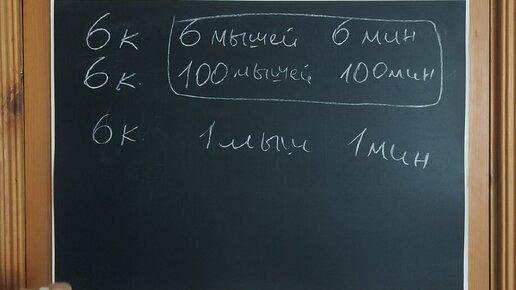 6 к 6 мышей 6 мин
6 к. 100 мышей 100 мин
6 к. 1 мыш 1 мин